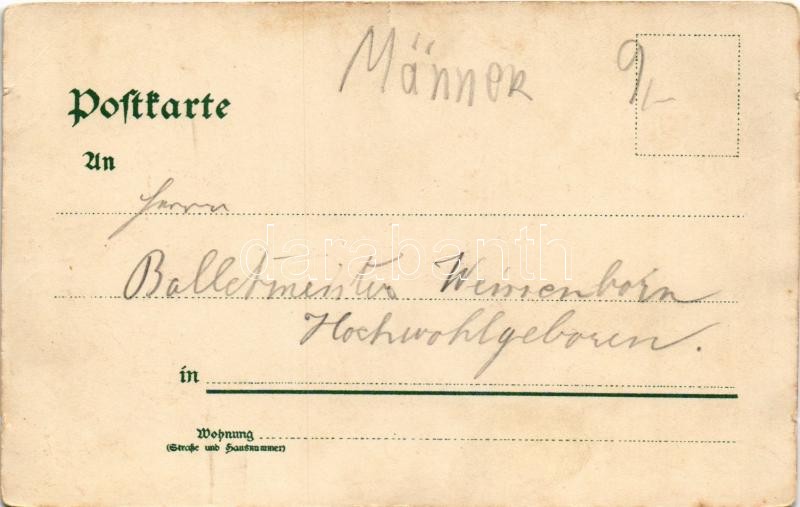 Männer 9/-
Postkarte
An
Herrn
Balletmeister Weissenborn
Hochwohlgeboren.
in
Wohnung
(Straße und Hausnummer)
darabanth